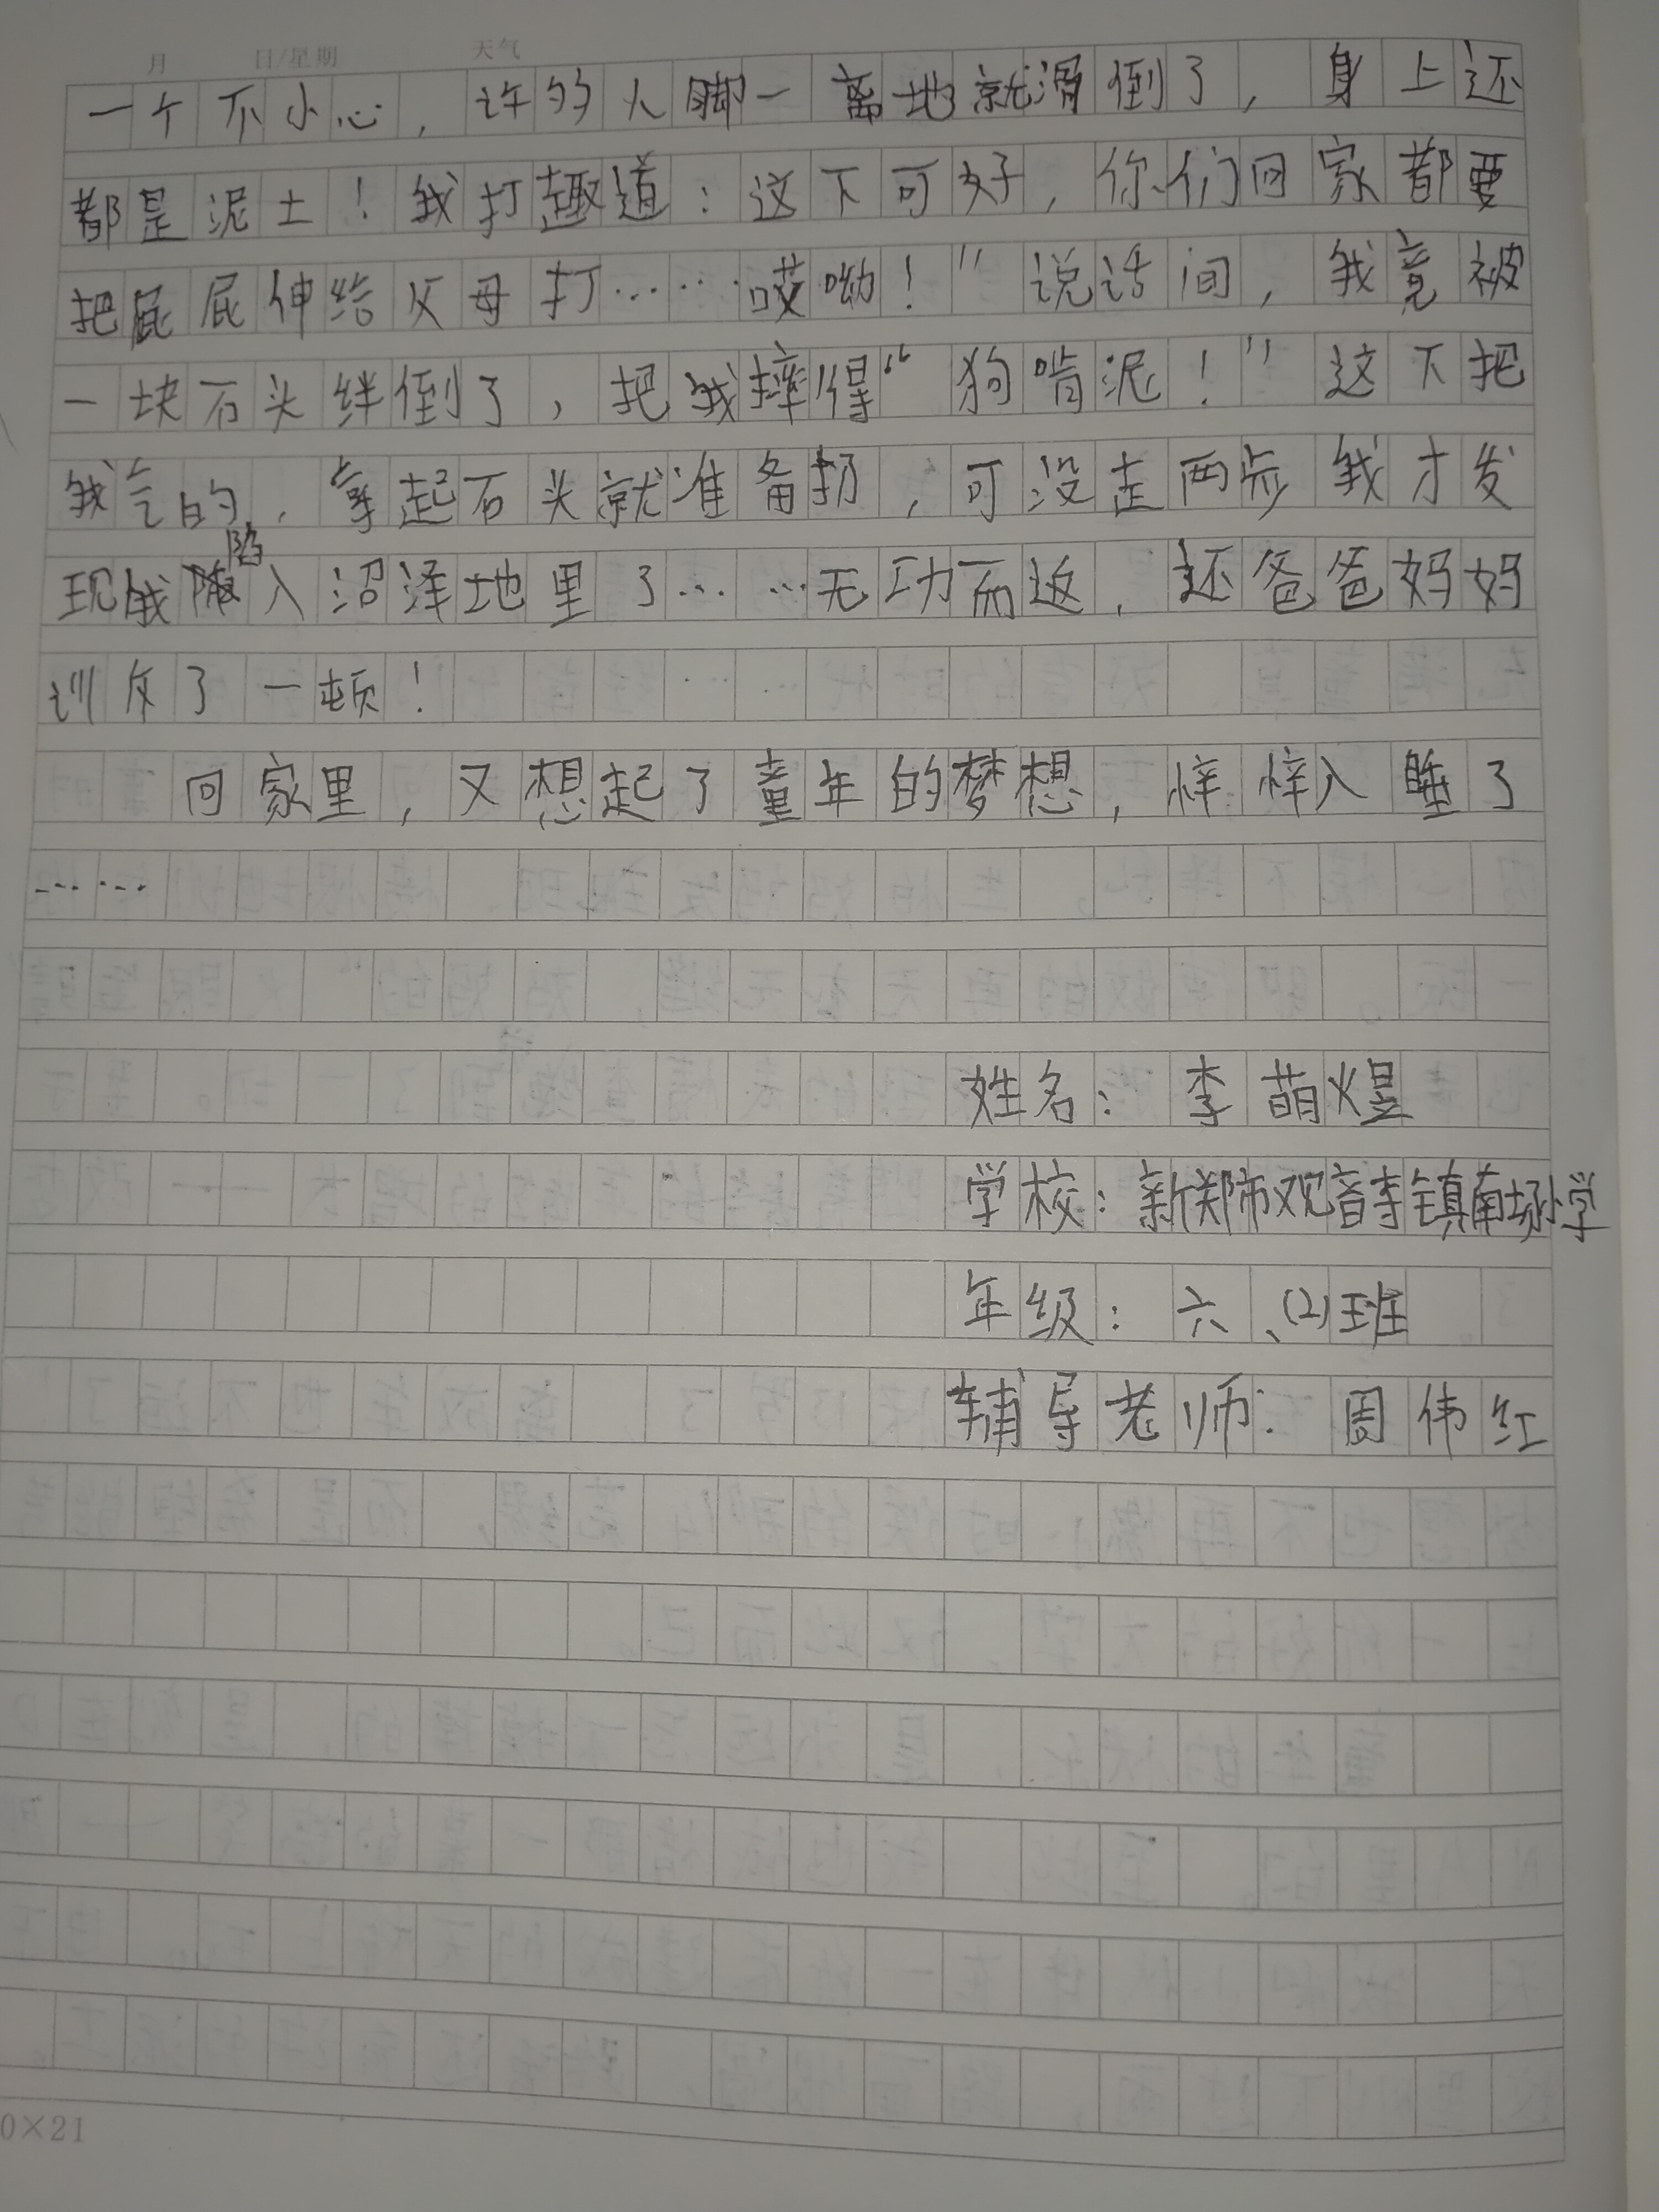 月 日/星期 天气
一个不小心，许的人脚一离地就滑倒了，身上还
都是泥土！我打趣道：这下可好，你们回家都要
把屁屁伸给父母打……哎呦！”说话间，我竟被
一块石头绊倒了，把我摔得“狗啃泥！”这下把
我气的，拿起石头就准备扔，可没走两步我才发
现我陷入沼泽地里了……无功而返，还爸爸妈妈
训斥了一顿！
回家里，又想起了童年的梦想，悻悻入睡了
……
姓名：李萌煜
学校：新郑市观音寺镇南场小学
年级：六、(2)班
辅导老师：周伟红
0×21